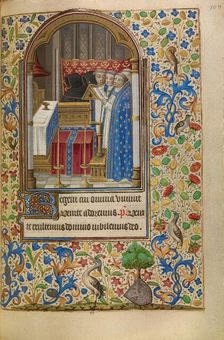 Regem cui omnia viuunt
venite adoremus. Veni
te exultemus domino iubilemus deo.